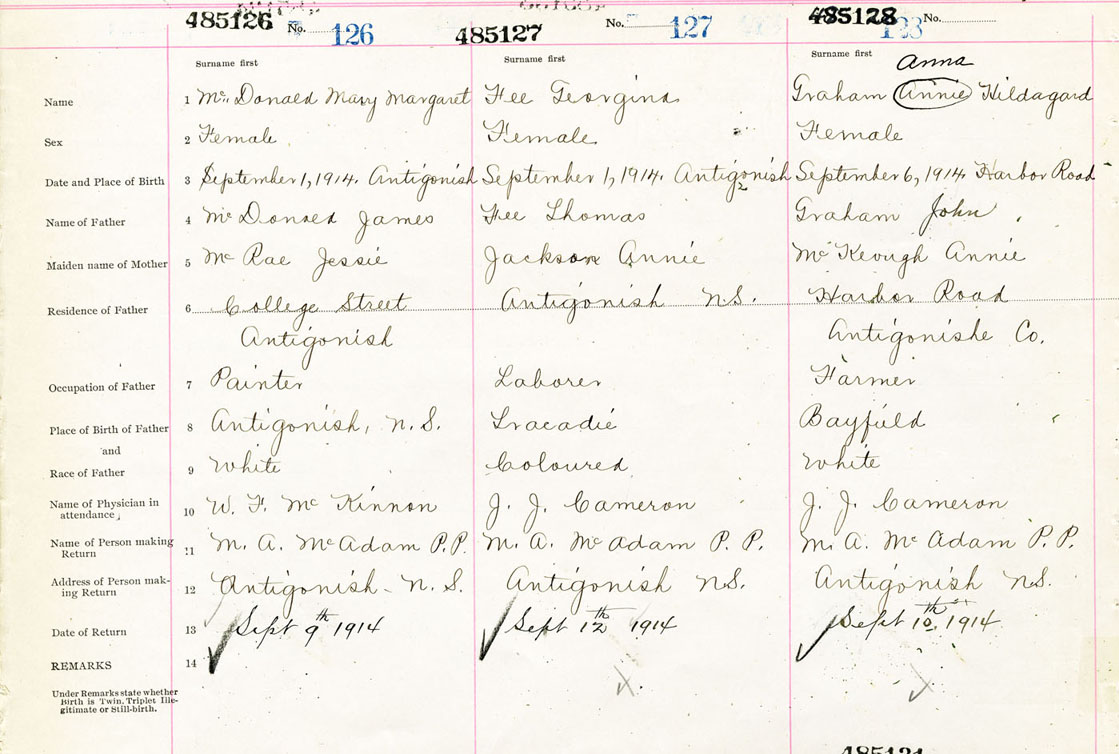 485126 No. 126 485127 No. 127 485128 No. 128
Surname first Surname first Surname first
Anna
Name 1 Mc Donald Mary Margaret Fee Georgina Graham Annie Hildagard
Sex 2 Female Female Female
Date and Place of Birth 3 September 1, 1914. Antigonish September 1, 1914. Antigonish September 6, 1914. Harbor Road
Name of Father 4 Mc Donald James Fee Thomas Graham John
Maiden name of Mother 5 Mc Rae Jessie Jackson Annie Mc Keough Annie
Residence of Father 6 College Street Antigonish N.S. Harbor Road
Antigonish Antigonishe Co.
Occupation of Father 7 Painter Laborer Farmer
Place of Birth of Father 8 Antigonish, N.S. Tracadie Bayfield
and
Race of Father 9 White Coloured White
Name of Physician in
attendance, 10 W. F. Mc Kinnon J. J. Cameron J. J. Cameron
Name of Person making
Return 11 M. A. McAdam P.P. M. A. Mc Adam P. P. M. A. Mc Adam P. P.
Address of Person mak-
ing Return 12 Antigonish N. S. Antigonish N.S. Antigonish N.S.
Date of Return 13 Sept 9th 1914 Sept 12th 1914 Sept 10th 1914
REMARKS 14
Under Remarks state whether
Birth is Twin, Triplet Ille-
gitimate or Still-birth.